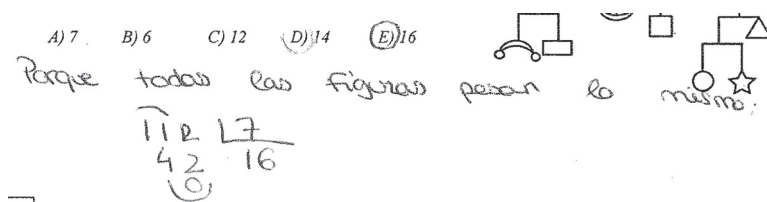 A) 7 B) 6 C) 12 D) 14 E) 16
Porque todas las figuras pesan lo mismo:
112 7
42 16
0